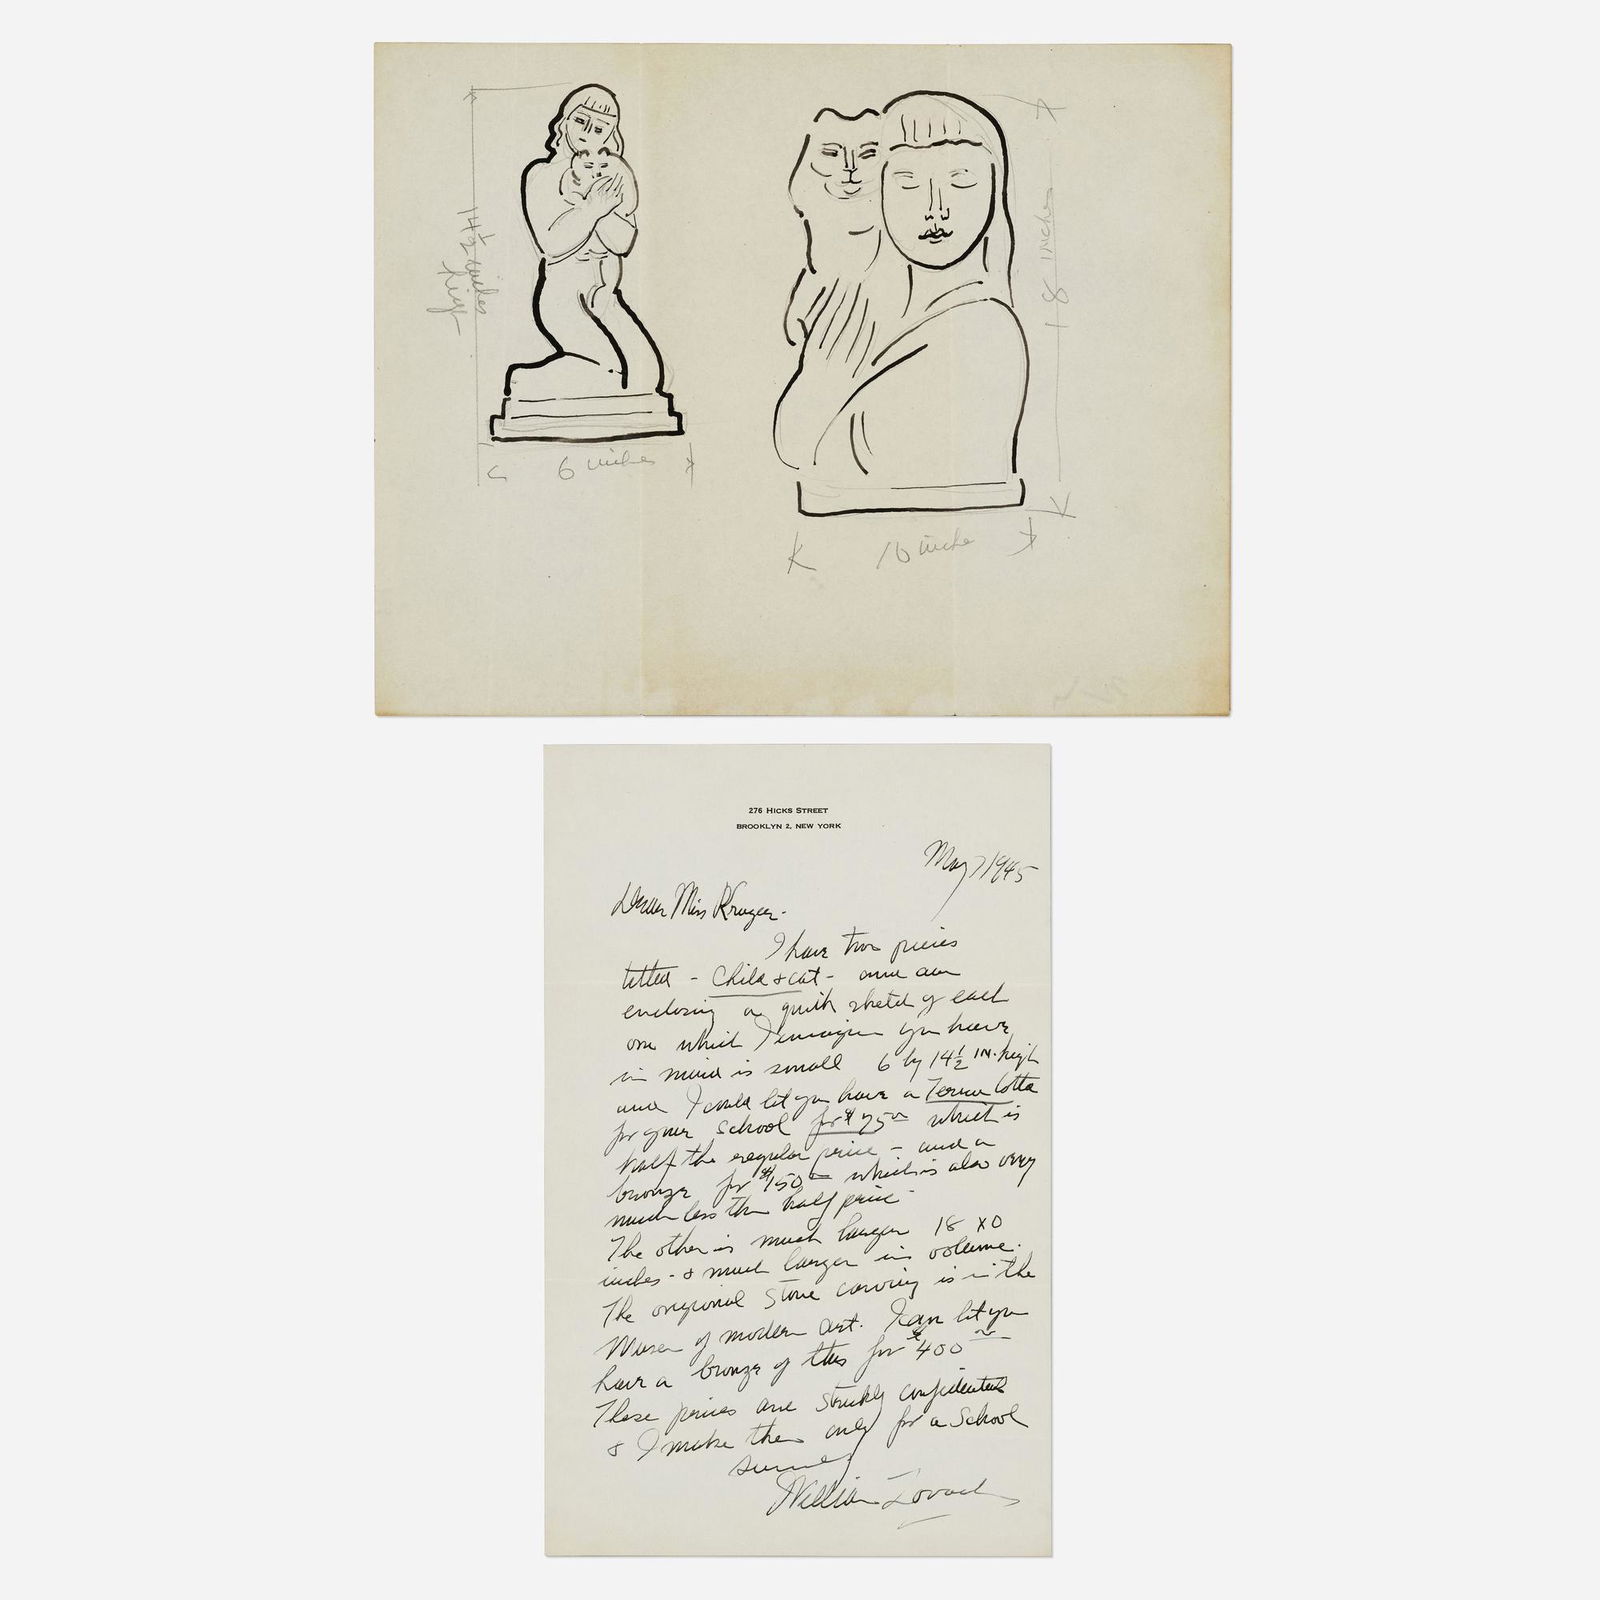 14½ inches
high
6 inches
18 inches
10 inche
276 HICKS STREET
BROOKLYN 2, NEW YORK
May 7 1945
Dear Miss Kruger-
I have two pieces
titled - Child & cat - and am
enclosing a quick sketch of each
one which I imagine you have
in mind is small 6 by 14½ IN. high
and I could let you have a Terra Cotta
for your School for $75 which is
half the regular price - and a
bronze for $150 which is also very
much less than half price -
The other is much larger 18 x 10
inches - & much larger in volume.
The original Stone carving is in the
Museum of modern art. I can let you
have a bronze of this for $400
These prices are strictly confidential
& I make them only for a School
William Zorach